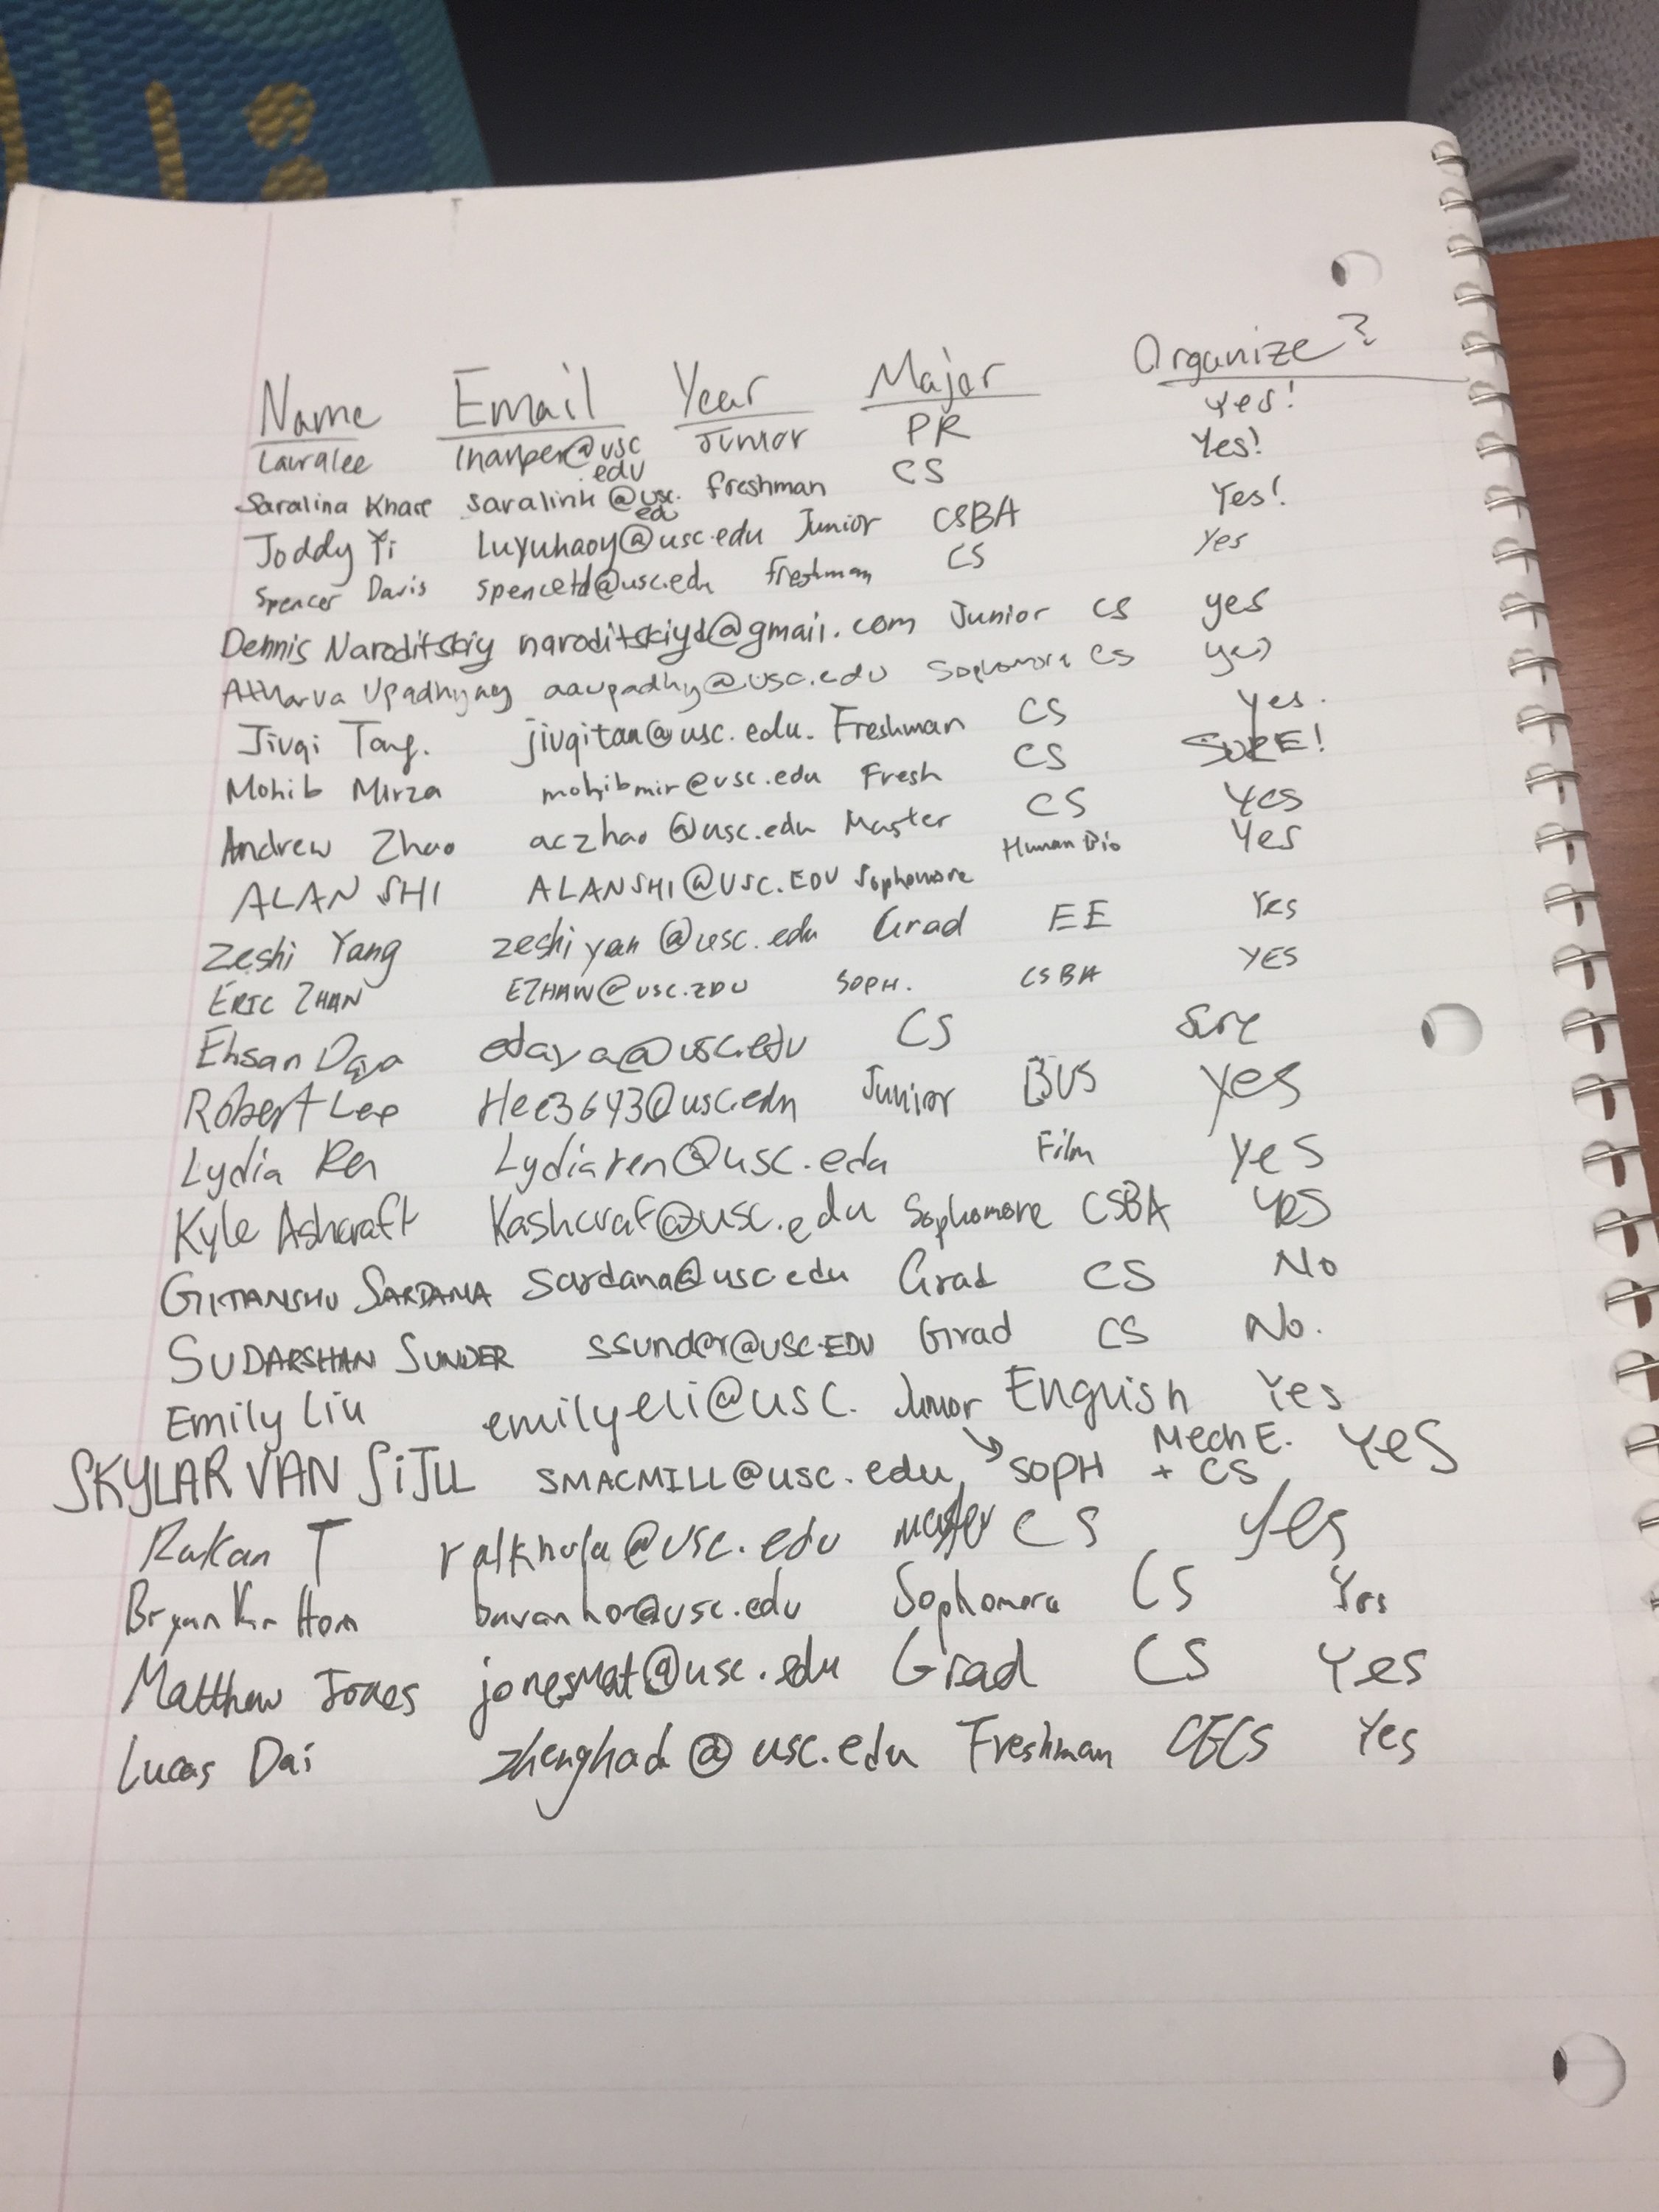 Name Email Year Major Organize?
Lauralee lharper@usc.edu Junior PR Yes!
Saralina Khare saralink@usc.edu freshman CS Yes!
Joddy Yi luyuhaoy@usc.edu Junior CSBA Yes!
Spencer Davis spencetd@usc.edu freshman CS Yes
Dennis Naroditskiy naroditskiyd@gmail.com Junior CS yes
Atharva aaupadhy@usc.edu Sophomore CS yes
Jiuqi jiuqitan@usc.edu. Freshman CS Yes.
Mohib Mirza mohibmir@usc.edu Fresh CS SURE!
Andrew Zhao aczhao@usc.edu Master CS Yes
ALAN SHI ALANSHI@USC.EDU Sophomore Human Bio Yes
Zeshi Yang zeshiyan@usc.edu Grad EE Yes
ERIC ZHAN SOPH. CSBA YES
Ehsan Daya edaya@usc.edu CS Sure
Robert Lee Junior BUS yes
Lydia Ren Lydiaren@usc.edu Film Yes
Kyle Ashcraft Kashcraf@usc.edu Sophomore CSBA Yes
GITANSHU SARDANA sardana@usc.edu Grad CS No
SUDARSHAN SUNDER ssunder@USC.EDU Grad CS No.
Emily Liu emilyeli@usc. Junior English Yes
SKYLAR VAN SIJLL SMACMILL@usc.edu, → SOPH MechE. + CS, YES
Rakan T ralkhula@usc.edu Master CS Yes
Bryan Van Horn bavanhor@usc.edu Sophomore CS Yes
Matthew Jones jonesmat@usc.edu Grad CS Yes
Lucas Dai zhenghad@usc.edu Freshman CECS Yes